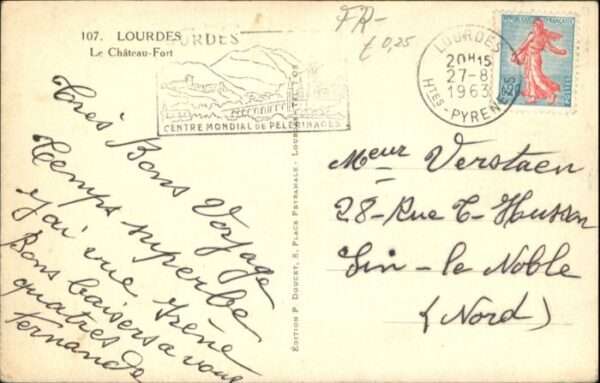 107. LOURDES
Le Château-Fort
LOURDES
CENTRE MONDIAL DE PELERINAGES
FR-
£ 0,25
LOURDES
20H15
27-8
1963
Htes-PYRENEES
Très Bons Voyage
Temps superbe
j'ai vue Irène
Bons baisers a vous
quatres de
Fernande
EDITION P DOUCET, 8, PLACE PEYRAMALE - LOURDES
Meur Verstaen
28-Rue T-Husson
Sin-le Noble
(Nord)